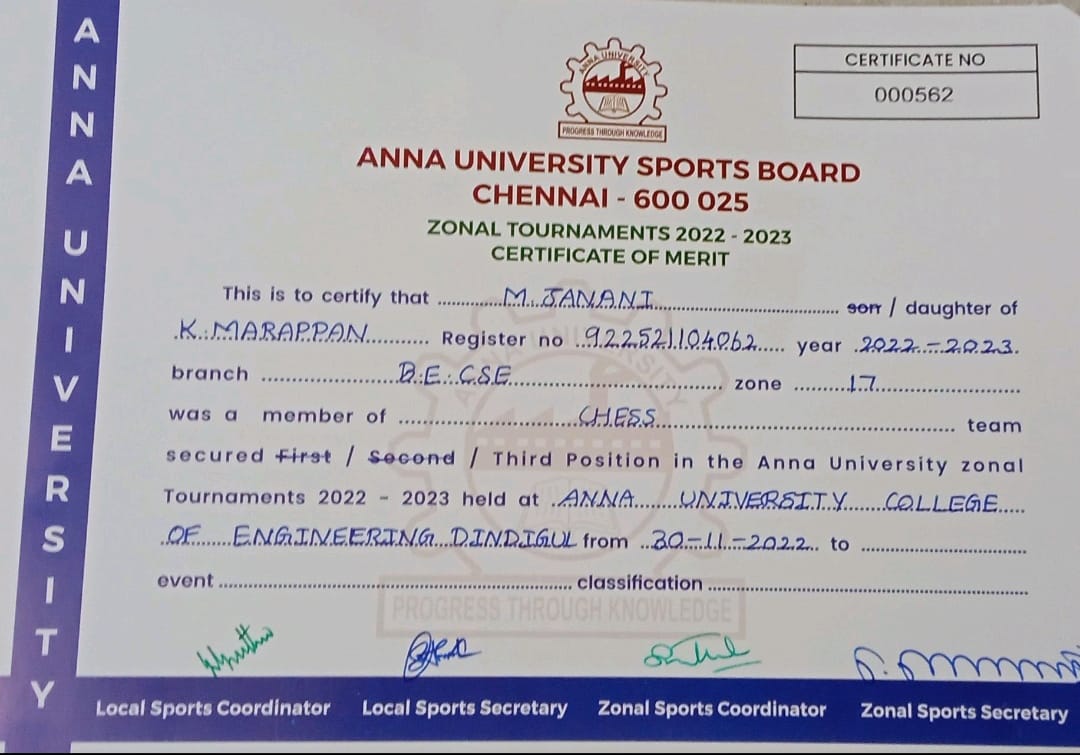 ANNA UNIVERSITY
ANNA UNIVERSITY
PROGRESS THROUGH KNOWLEDGE
CERTIFICATE NO
000562
ANNA UNIVERSITY SPORTS BOARD
CHENNAI - 600 025
ZONAL TOURNAMENTS 2022 - 2023
CERTIFICATE OF MERIT
This is to certify that M. JANANI son / daughter of
K. MARAPPAN Register no 922521104062 year 2022-2023.
branch B.E. CSE zone 17
was a member of CHESS team
secured First / Second / Third Position in the Anna University zonal
Tournaments 2022 - 2023 held at ANNA UNIVERSITY COLLEGE
OF ENGINEERING DINDIGUL from 30-11-2022 to
event classification
PROGRESS THROUGH KNOWLEDGE
Local Sports Coordinator Local Sports Secretary Zonal Sports Coordinator Zonal Sports Secretary